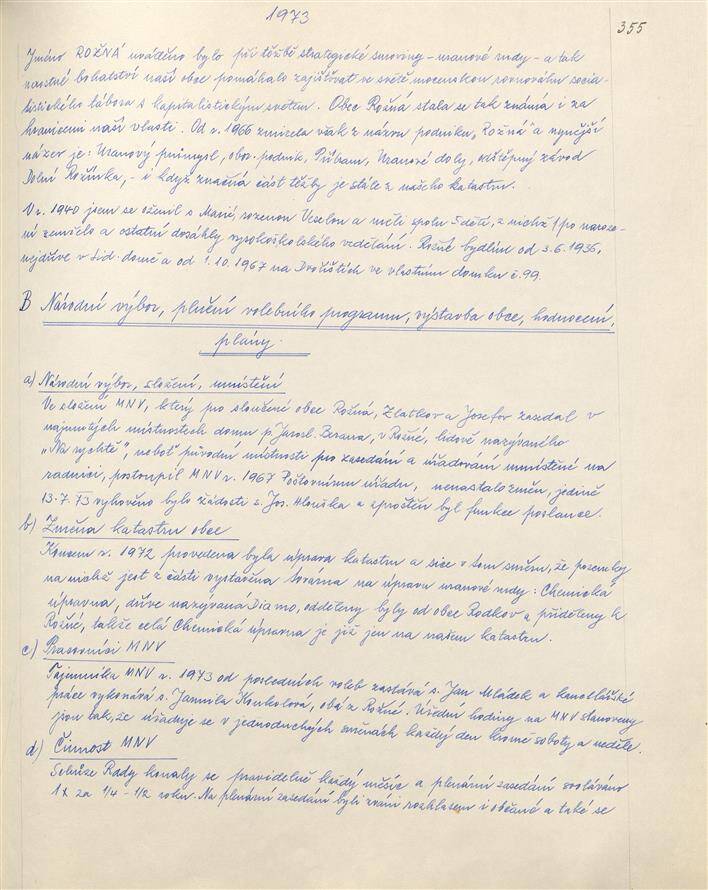 1973
355
Jméno ROŽNÁ uváděno bylo při těžbě strategické suroviny - uranové rudy - a tak
nerostné bohatství naší obce pomáhalo zajišťovat ve světě mocenskou rovnováhu socia-
listického tábora s kapitalistickým světem. Obec Rožná stala se tak známá i za
hranicemi naší vlasti. Od r. 1966 zmizela však z názvu podniku "Rožná" a nynější
název je: Uranový průmysl, obor. podnik, Příbram, Uranové doly, odštěpný závod
Dolní Rožínka, - i když značná část těžby je stále z našeho katastru.
V r. 1940 jsem se oženil s Marií, rozenou Veselou a měli spolu 5 dětí, z nichž 1 po naroze-
ní zemřelo a ostatní dosáhly vysokoškolského vzdělání. Rožné bydlím od 3.6.1936,
nejdříve v Lid. domě a od 1.10.1967 na Dvořištích ve vlastním domku č. 99.
B Národní výbor, plnění volebního programu, výstavba obce, hodnocení,
plány.
a) Národní výbor, složení, umístění
Ve složení MNV, který pro sloučené obce Rožná, Zlatkov a Josefov zasedal v
najmutých místnostech domu p. Jarosl. v Rožné, lidově nazývaného
"Na rychtě", neboť původní místnosti pro zasedání a úřadování umístěné na
radnici, postoupil MNV r. 1967 Poštovnímu úřadu, nenastalo změn, jedině
13.7.73 vyhověno bylo žádosti s. Jos. Hlouška a zproštěn byl funkce poslance.
b) Změna katastru obce
Koncem r. 1972 provedena byla úprava katastru a sice v tom směru, že pozemky
na nichž jest z části vystavěna továrna na úpravu uranové rudy: Chemická
úpravna, dříve nazývaná Diamo, odděleny byly od obce Rodkov a přiděleny k
Rožné, takže celá Chemická úpravna je již jen na našem katastru.
c) Pracovníci MNV
Tajemníka MNV r. 1973 od posledních voleb zastává s. Jan Mládek a kancelářské
práce vykonává s. Jarmila Koukolová, obá z Rožné. Úřední hodiny na MNV stanoveny
jsou tak, že úřaduje se v jednoduchých směnách každý den kromě soboty a neděle.
d) Činnost MNV
Schůze Rady konaly se pravidelně každý měsíc a plenární zasedání svoláváno
1x za 1/4 - 1/2 roku. Na plenární zasedání byli zváni rozhlasem i občané a také se